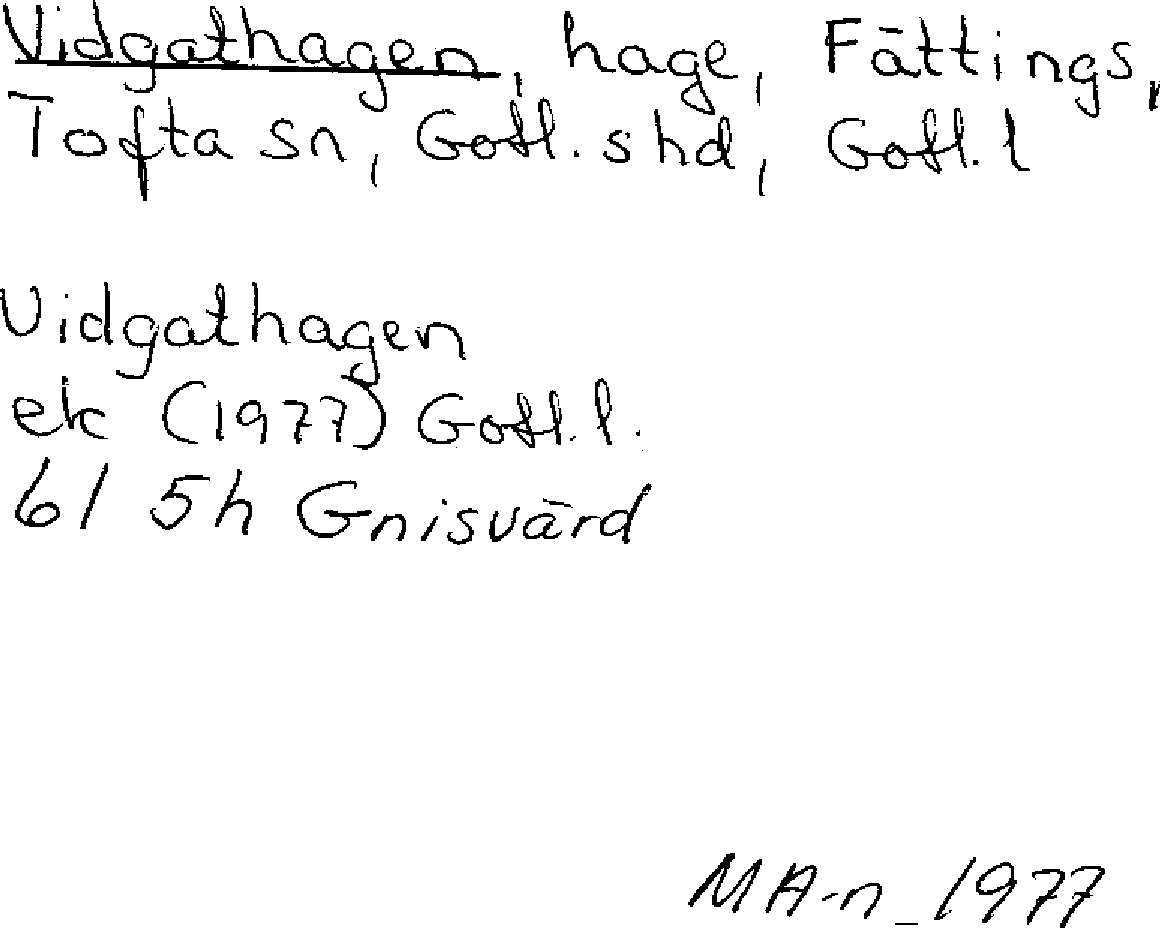 Vidgathagen, hage, Fättings,
Tofta sn, Gotl. s hd, Gotl. l
Vidgathagen
ek (1977) Gotl. l.
6I 5h Gnisvärd
MA-n_1977